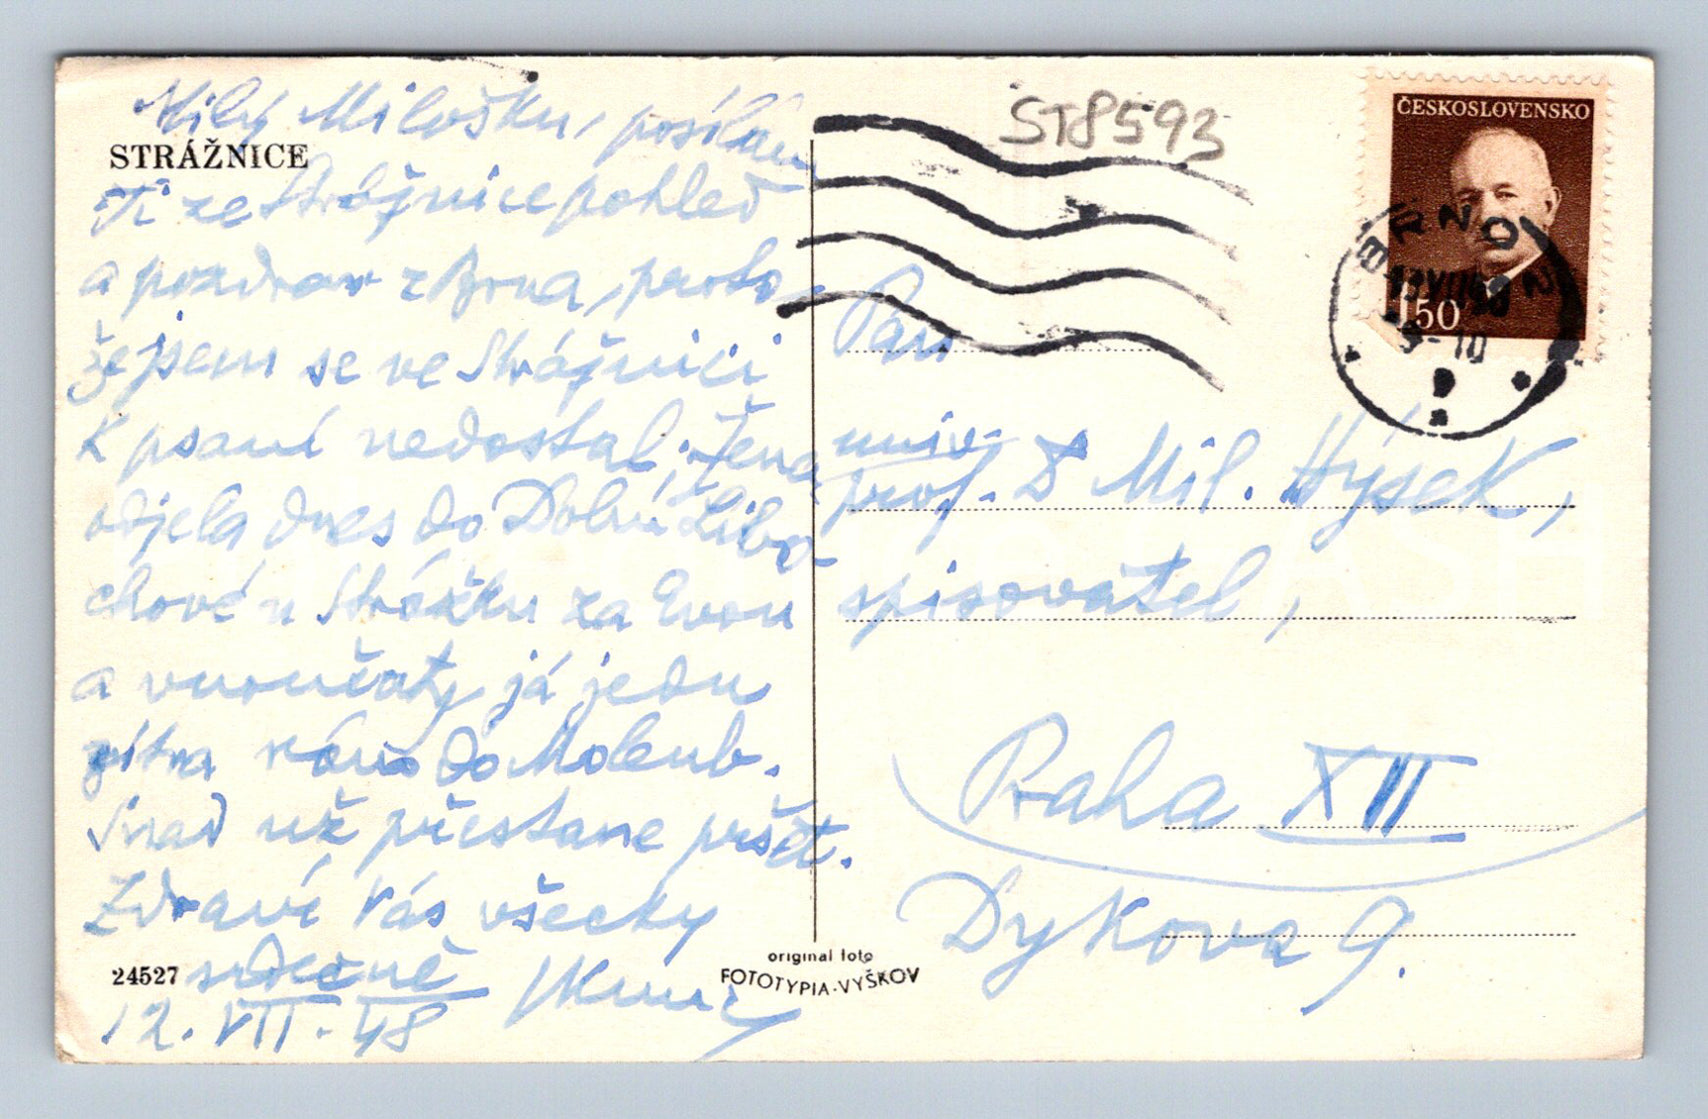 STRÁŽNICE
Milý Milošku, posílám
Ti ze Strážnice pohled
a pozdrav z Brna, proto-
že jsem se ve Strážnici
k psaní nedostal; žena
odjela dnes do Dolní Libo-
chové u Strážku za Evou
a vnoučaty já jedu
zítra ráno do Molenb.
Snad už přestane pršet.
Zdraví Vás všecky
srdečně
12. VII. 48
24527
original foto
FOTOTYPIA-VYŠKOV
ST8593
ČESKOSLOVENSKO
1.50
BRNO 2
Pan
univ.
prof. Dr Mil. Hýsek,
spisovatel,
Praha XII
Dykova 9.